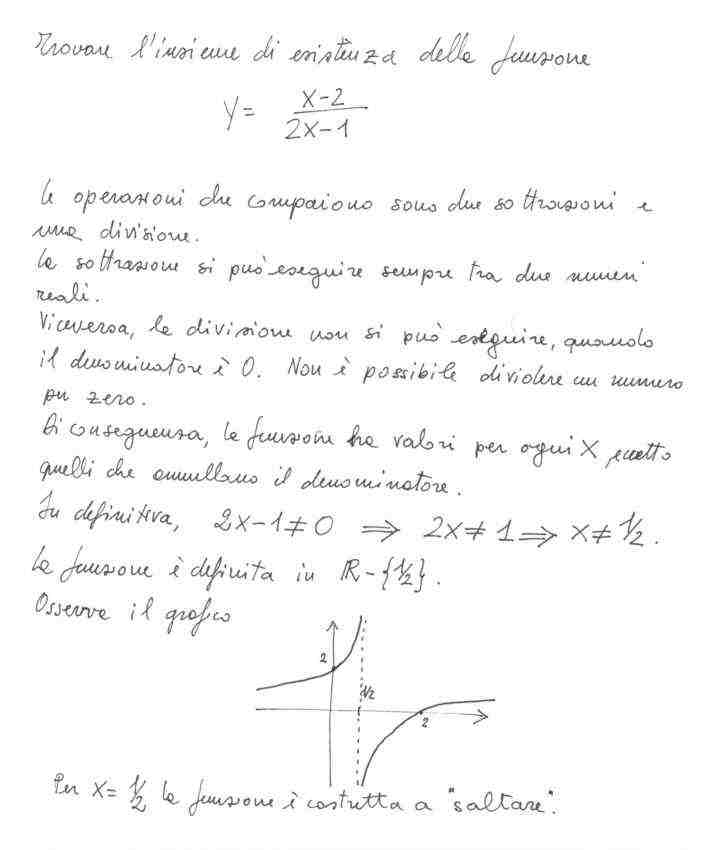 Trovare l'insieme di esistenza della funzione
y = x-2 / 2x-1
Le operazioni che compaiono sono due sottrazioni e
una divisione.
La sottrazione si può eseguire sempre tra due numeri
reali.
Viceversa, la divisione non si può eseguire, quando
il denominatore è 0. Non è possibile dividere un numero
per zero.
Di conseguenza, la funzione ha valori per ogni x eccetto
quelli che annullano il denominatore.
In definitiva, 2x-1≠0 ⇒ 2x≠1 ⇒ x≠1/2.
La funzione è definita in ℝ-{1/2}.
Osserva il grafico
2
1/2
2
Per x= 1/2 la funzione è costretta a "saltare".